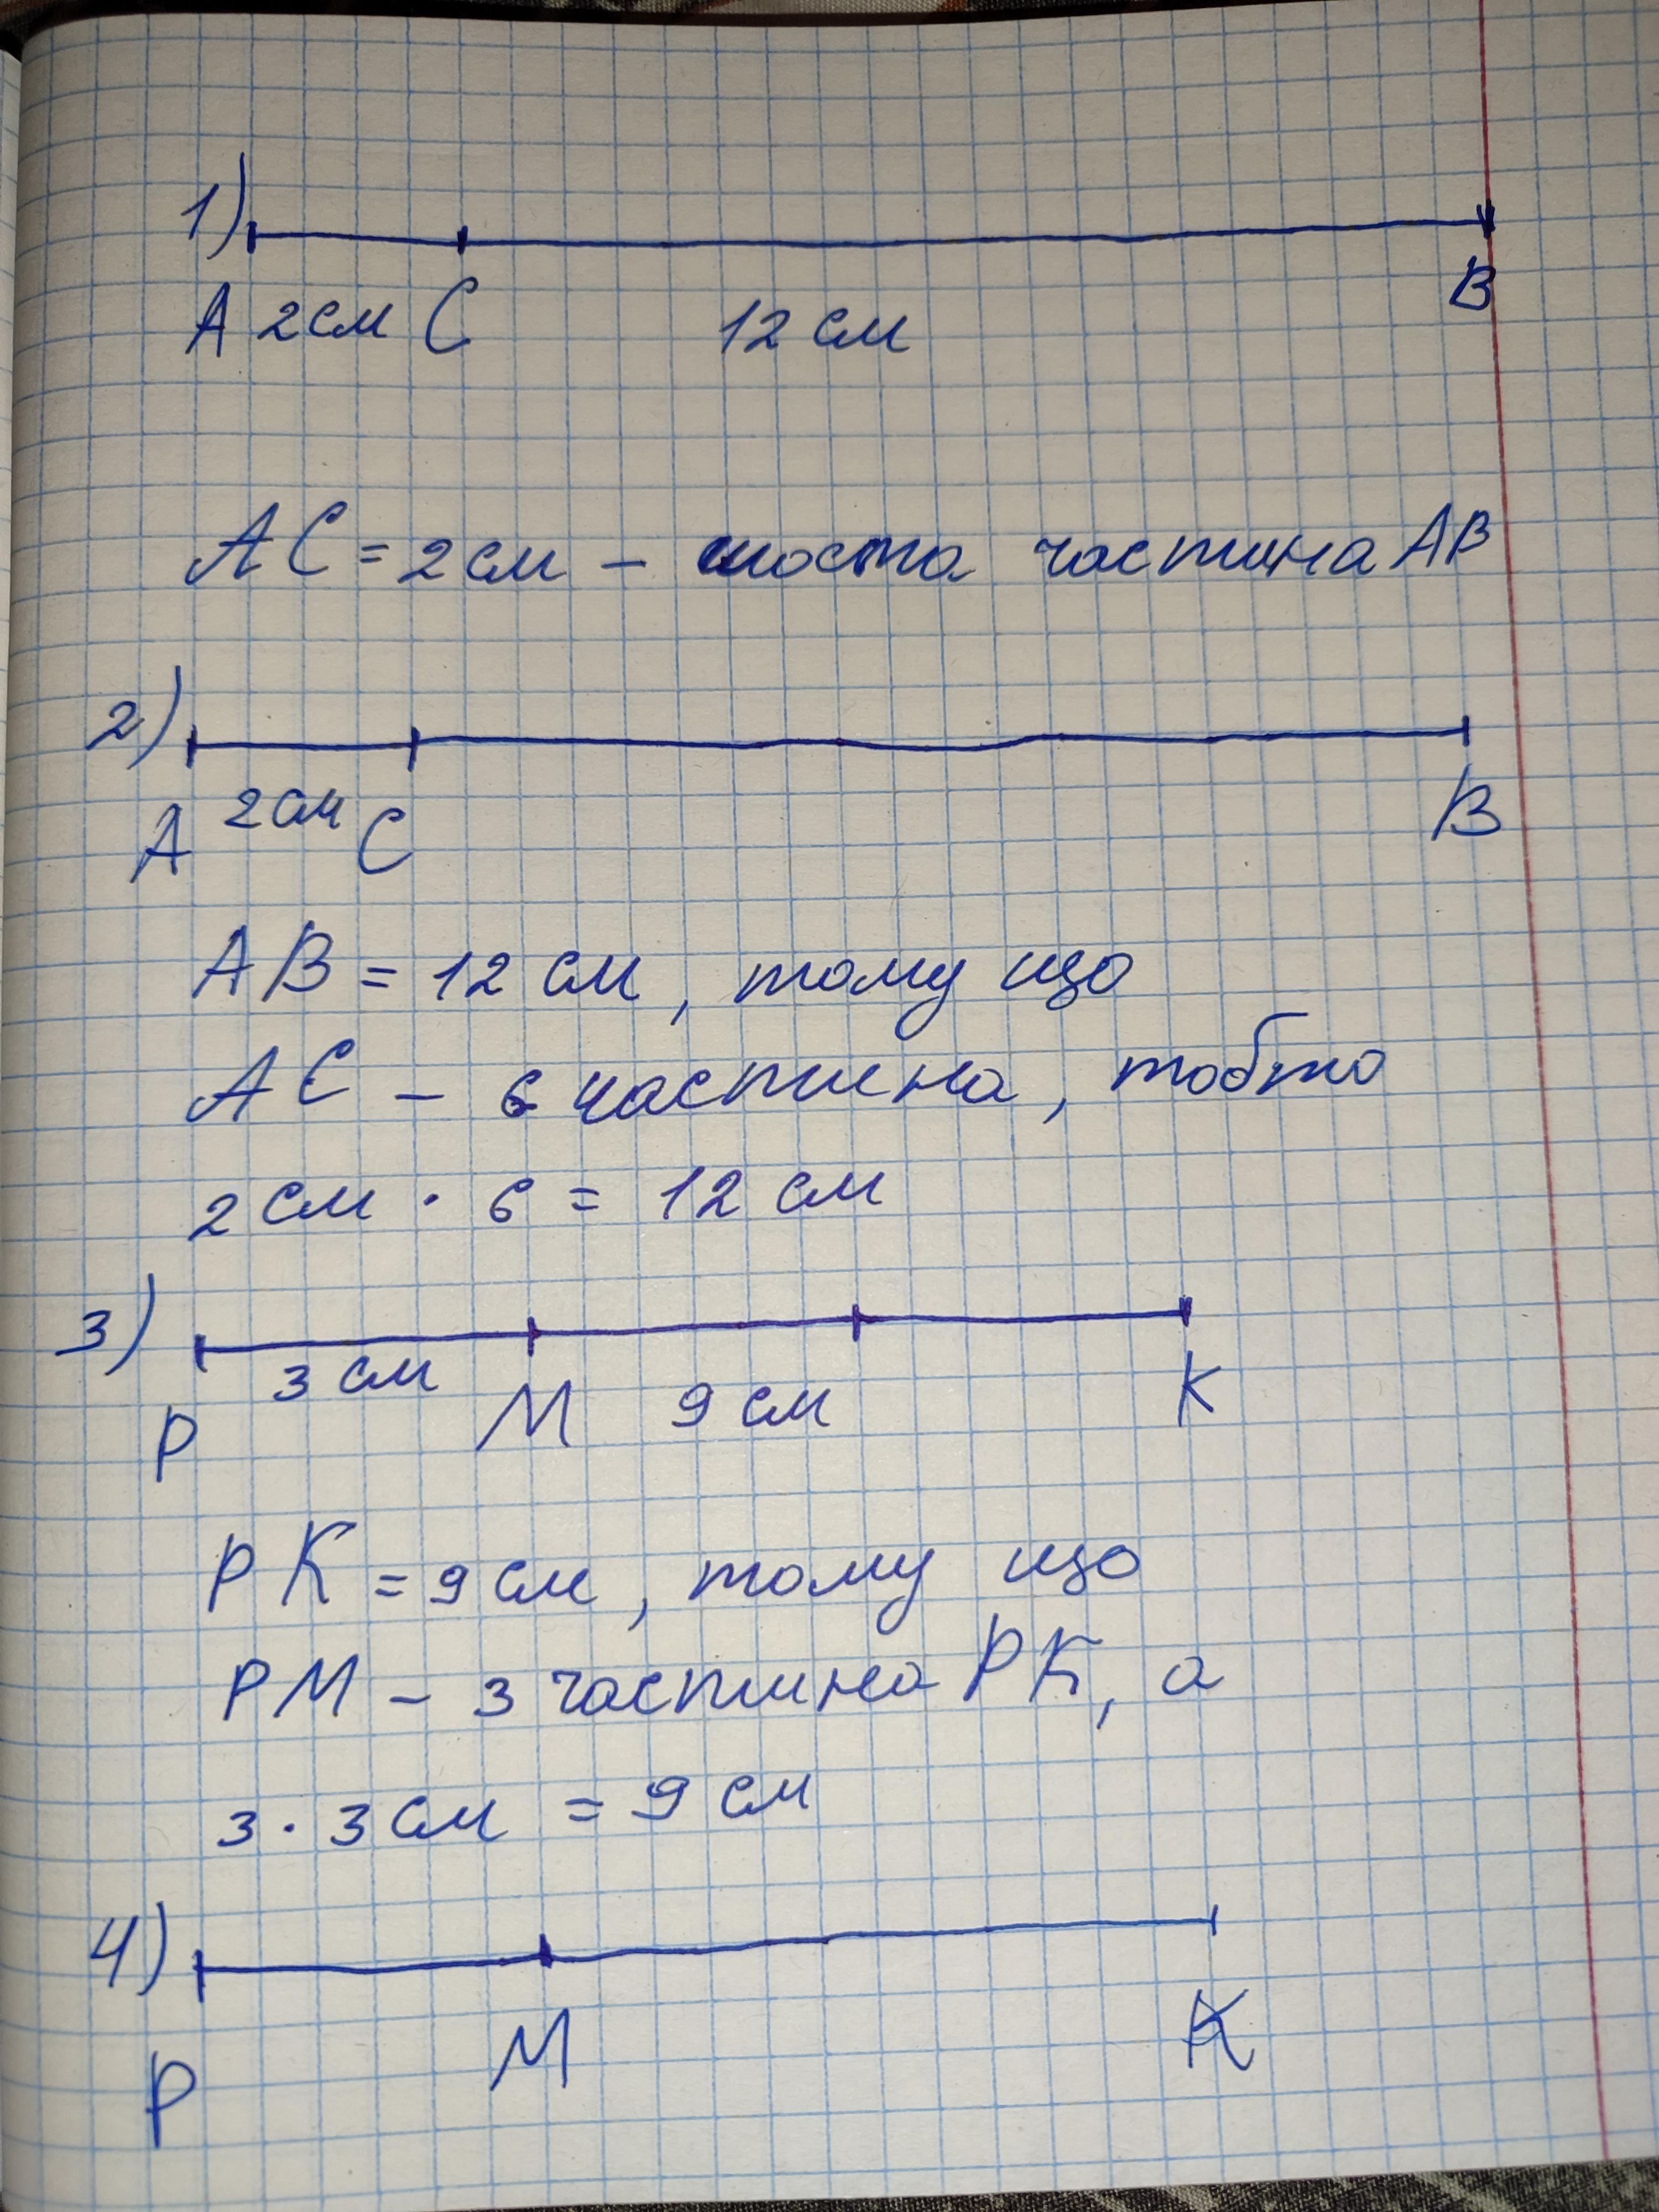 1)
A 2см C 12 см B
AC = 2 см – шоста частина AB
2)
A 2см C B
AB = 12 см, тому що
AC – 6 частина, тобто
2 см · 6 = 12 см
3)
P 3 см M 9 см K
PK = 9 см, тому що
PM – 3 частина PK, а
3 · 3 см = 9 см
4)
P M K